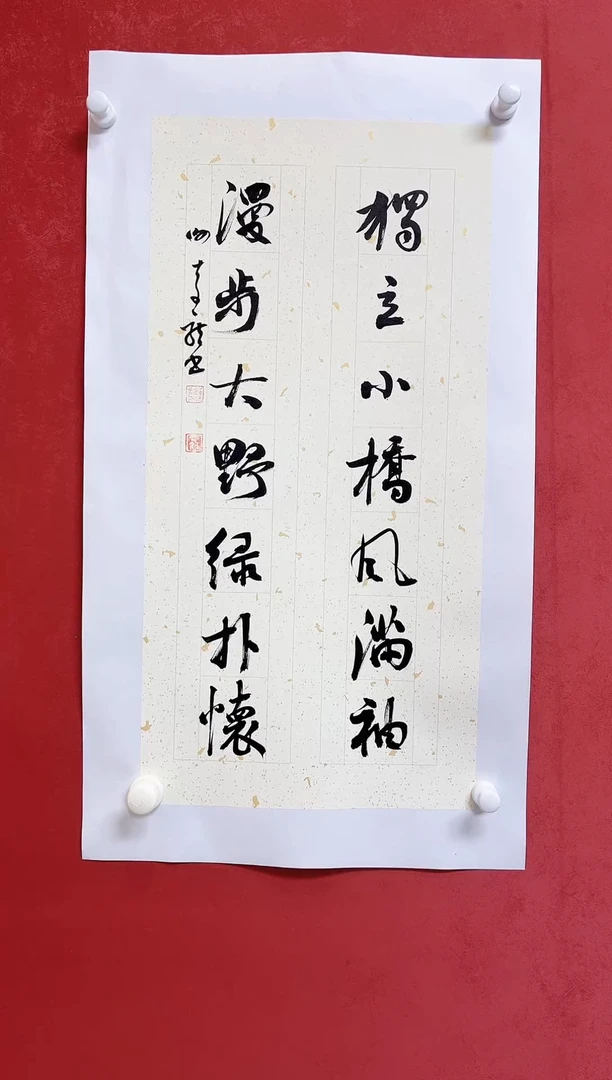 獨立小橋風滿袖
漫步大野绿扑懷